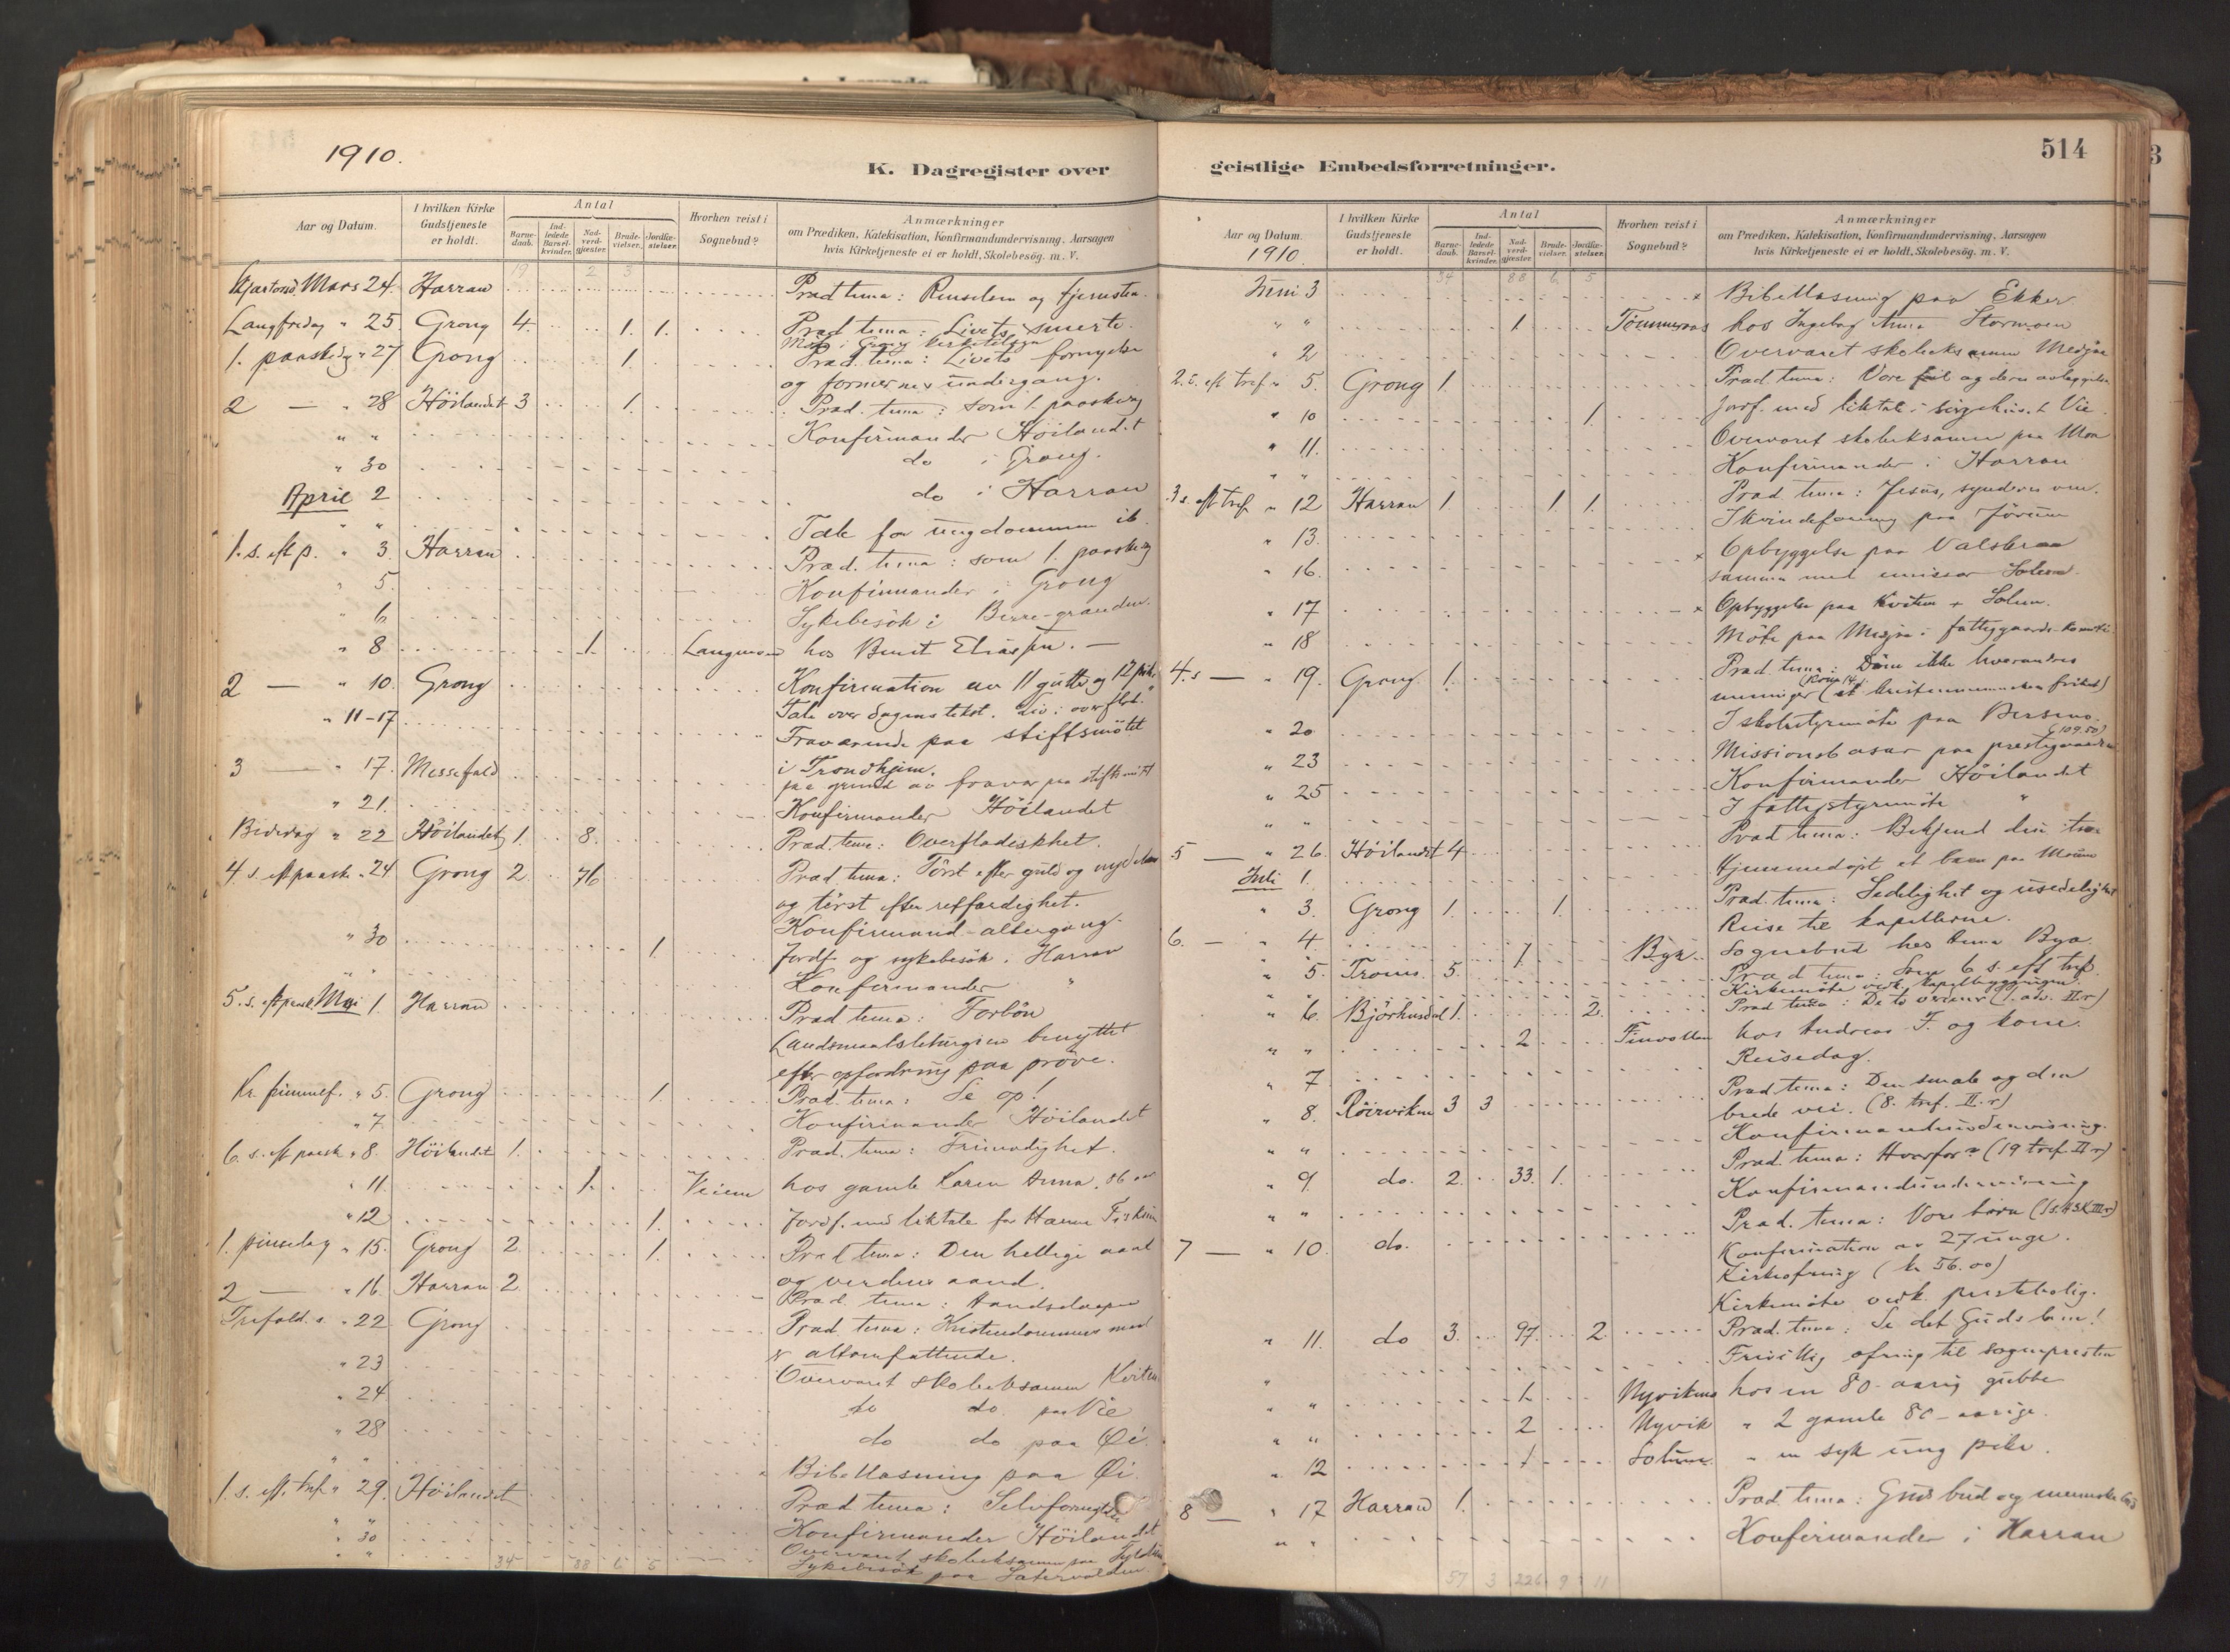 1910.
K. Dagregister over
Aar og Datum.
I hvilken Kirke Gudstjeneste er holdt.
Antal
Barne-daab.
Ind-ledede Barsel-kvinder.
Nad-verd-gjester.
Brude-vielser.
Jordfæ-stelser.
Hvorhen reist i Sognebud?
Anmærkninger
om Prædiken, Katekisation, Konfirmandundervisning. Aarsagen
hvis Kirketjeneste ei er holdt, Skolebesøg. m. V.
19 2 3
Skjærtorsd. Mars 24. Harran Præd tema: Renselsen og tjenesten.
Langfredag " 25. Grong 4. 1. 1. Præd. tema: Livets smerte.
Møte i Grong kirketilsyn
1. paaskedg " 27 Grong 1. Præd. tema: Livets fornyelse
og forniernes undergang.
2 — " 28 Höilandet 3 1. Præd. tema: som 1. paaskedag
" " Konfirmander Höilandet
" 30 do i Grong.
April 2 do i Harran
" " Tale for ungdommen ib.
1. s. eft p. " 3. Harran Præd. tema: som 1. paaskedag
" 5. Konfirmander i Grong
" 6 Sykebesök i Berre-granden.
" 8 1. Langmoen hos Benit Eliassen. —
2 — " 10. Grong Konfirmation av 11 gutter og 12 piker
Tale over dagens tekst. Liv i overflod.
" 11-17 Fraværende paa stiftsmötet
i Trondhjem.
3 — " 17. Messefald paa grund av fravær paa stiftsmöt
" 21. Konfirmander Höilandet
Bededag " 22 Höilandet 1. 8. Præd. tema: Overfladiskhet.
4. s. eft paask. " 24 Grong 2. 76 Præd tema: Törst efter guld og nydelse
og törst efter retfærdighet.
Konfirmand-altergang.
" 30 1. Jordf. og sykebesök i Harran
" " Konfirmander "
5. s. eft paask Mai 1. Harran Præd tema: Forbön
Landsmaalsliturgien benyttet
efter opfordring paa pröve.
Kr. himmelf. " 5. Grong 1. Præd. tema: Se op!
" 7 Konfirmander Höilandet
6. s. eft paask " 8. Höilandet 1. Præd. tema: Frimodighet.
" 11. 1. Veiem hos gamle Karen Anna, 86 aar
" 12 1. Jordf. med liktale for Hanna Fiskum
1. pinsedag " 15. Grong 2. 1. Præd tema: Den hellige aand
og verdens aand.
2 — " 16. Harran 2. Præd. tema: Aandsdaapen
Trefold. s. " 22. Grong Præd tema: Kristendommens maal
er altomfattende.
" 23 Overværet skoleeksamen Kvitem
" 24 do do. paa Vie
" 28 do do paa Øi.
" " Bibellæsning paa Øi.
1. s. eft. tref " 29. Höilandet Præd tema: Selvfornegtelse
" " Konfirmander Höilandet
" 30 Overværet skoleeksamen paa
" " Sykebesök paa
34 88 6 5
514
geistlige Embedsforretninger.
Aar og Datum.
1910.
I hvilken Kirke Gudstjeneste er holdt.
Antal
Barne-daab.
Ind-ledede Barsel-kvinder.
Nad-verd-gjester.
Brude-vielser.
Jordfæ-stelser.
Hvorhen reist i Sognebud?
Anmærkninger
om Prædiken, Katekisation, Konfirmandundervisning. Aarsagen
hvis Kirketjeneste ei er holdt, Skolebesøg. m. V.
34 88 6 5
Juni 3 Bibellæsning paa Ekker
" " 1 Tömmeraas hos Ingeborg Anna Stormoen
" 2 Overværet skoleeksamen Medjaa
2. s. eft tref " 5. Grong 1. Præd. tema: Vore feil og deres avlæggelse
" 10 1. Jordf. med liktale i sörgehus. Vie.
" 11. Overværet skoleeksamen paa Moa
" " Konfirmander i Harran
3 s. eft tref. " 12 Harran 1. 1. 1. Præd tema: Jesus, synderes ven.
" 13. I kvindeforening paa Jörum
" 16. Opbyggelse paa Valskraa
sammen med emissær Solem.
" 17 Opbyggelse paa Kvitem + Solem.
" 18 Möte paa Medjaa i fattiggaards-komite.
4. s — " 19. Grong 1. Præd. tema: Döm ikke hverandres
meninger (Rom. 14) (et kristenmenneskes frihet)
" 20 I skolestyremöte paa Bersmo.
" 23 Missionsbasar paa prestegaarden (109.50)
" 25 Konfirmander Höilandet
" " I fattigstyremöte "
5 — " 26. Höilandet 4 Præd tema: Bekjend din tro
Juli 1. Hjemmedöpt et barn paa Moum
" 3. Grong 1. 1. Præd. tema: Sedelighet og usedelighet
6. — " 4. Reise til kapellerne.
1. Bya. Sognebud hos Anna Bya.
" 5. Troms. 5. Præd tema: Som 6 s. eft tref.
Kirkemöte vedk. kapelbyggningen.
" 6. Björhusdal 1. 2. Præd tema: De to veiene (1. adv. II. r)
" " 2 Finvollen hos Andreas F. og kone.
" 7 Reisedag.
" 8. Röirviken 3 3 Præd tema: Den smale og den
brede vei. (8. tref. II. r)
" " Konfirmandundervisning.
" 9. do. 2. 33. 1. Præd. tema: Hvorfor? (19 tref II r)
" " Konfirmandundervisning
7 — " 10. do. Præd. tema: Vore börn (1 s. H3K III r)
Konfirmation av 27 unge.
Kirkeofring (kr 56.00)
Kirkemöte vedk. prestebolig.
" 11. do 3. 97. 2. Præd. tema: Se det Guds lam!
" Frivillig ofring til sognepresten
" " 1. Nyvikmo hos en 80-aarig gubbe
" " 2 Nyvik " 2 gamle 80-aarige.
" 12 1 Solum. " en syk ung pike.
8 — " 17 Harran 1. Præd. tema: Guds bud og menneskebud
" " Konfirmander i Harran
57 3 226 9 11